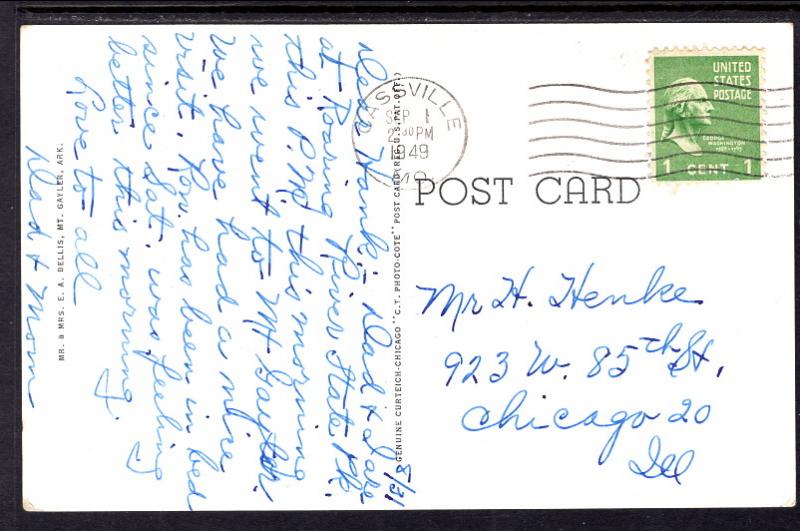 8/31
Dear Hank:- Dad & I are
at Roaring River State Pk.
this P.M. this morning
we went to Mt Gaylor.
We have had a nice
visit. Ron has been in bed
since Sat. was feeling
better this morning.
Love to all
Dad & Mom
MR. & MRS. E. A. BELLIS, MT. GAYLER, ARK.
GENUINE CURTEICH-CHICAGO "C.T. PHOTO-COTE" POST CARD (REG. U.S. PAT. OFF.)
CASSVILLE
SEP 1
2:30PM
1949
MO.
UNITED
STATES
POSTAGE
GEORGE
WASHINGTON
1789-1797
1 CENT 1
POST CARD
Mr H. Henke
923 W. 85th St,
Chicago 20
Ill